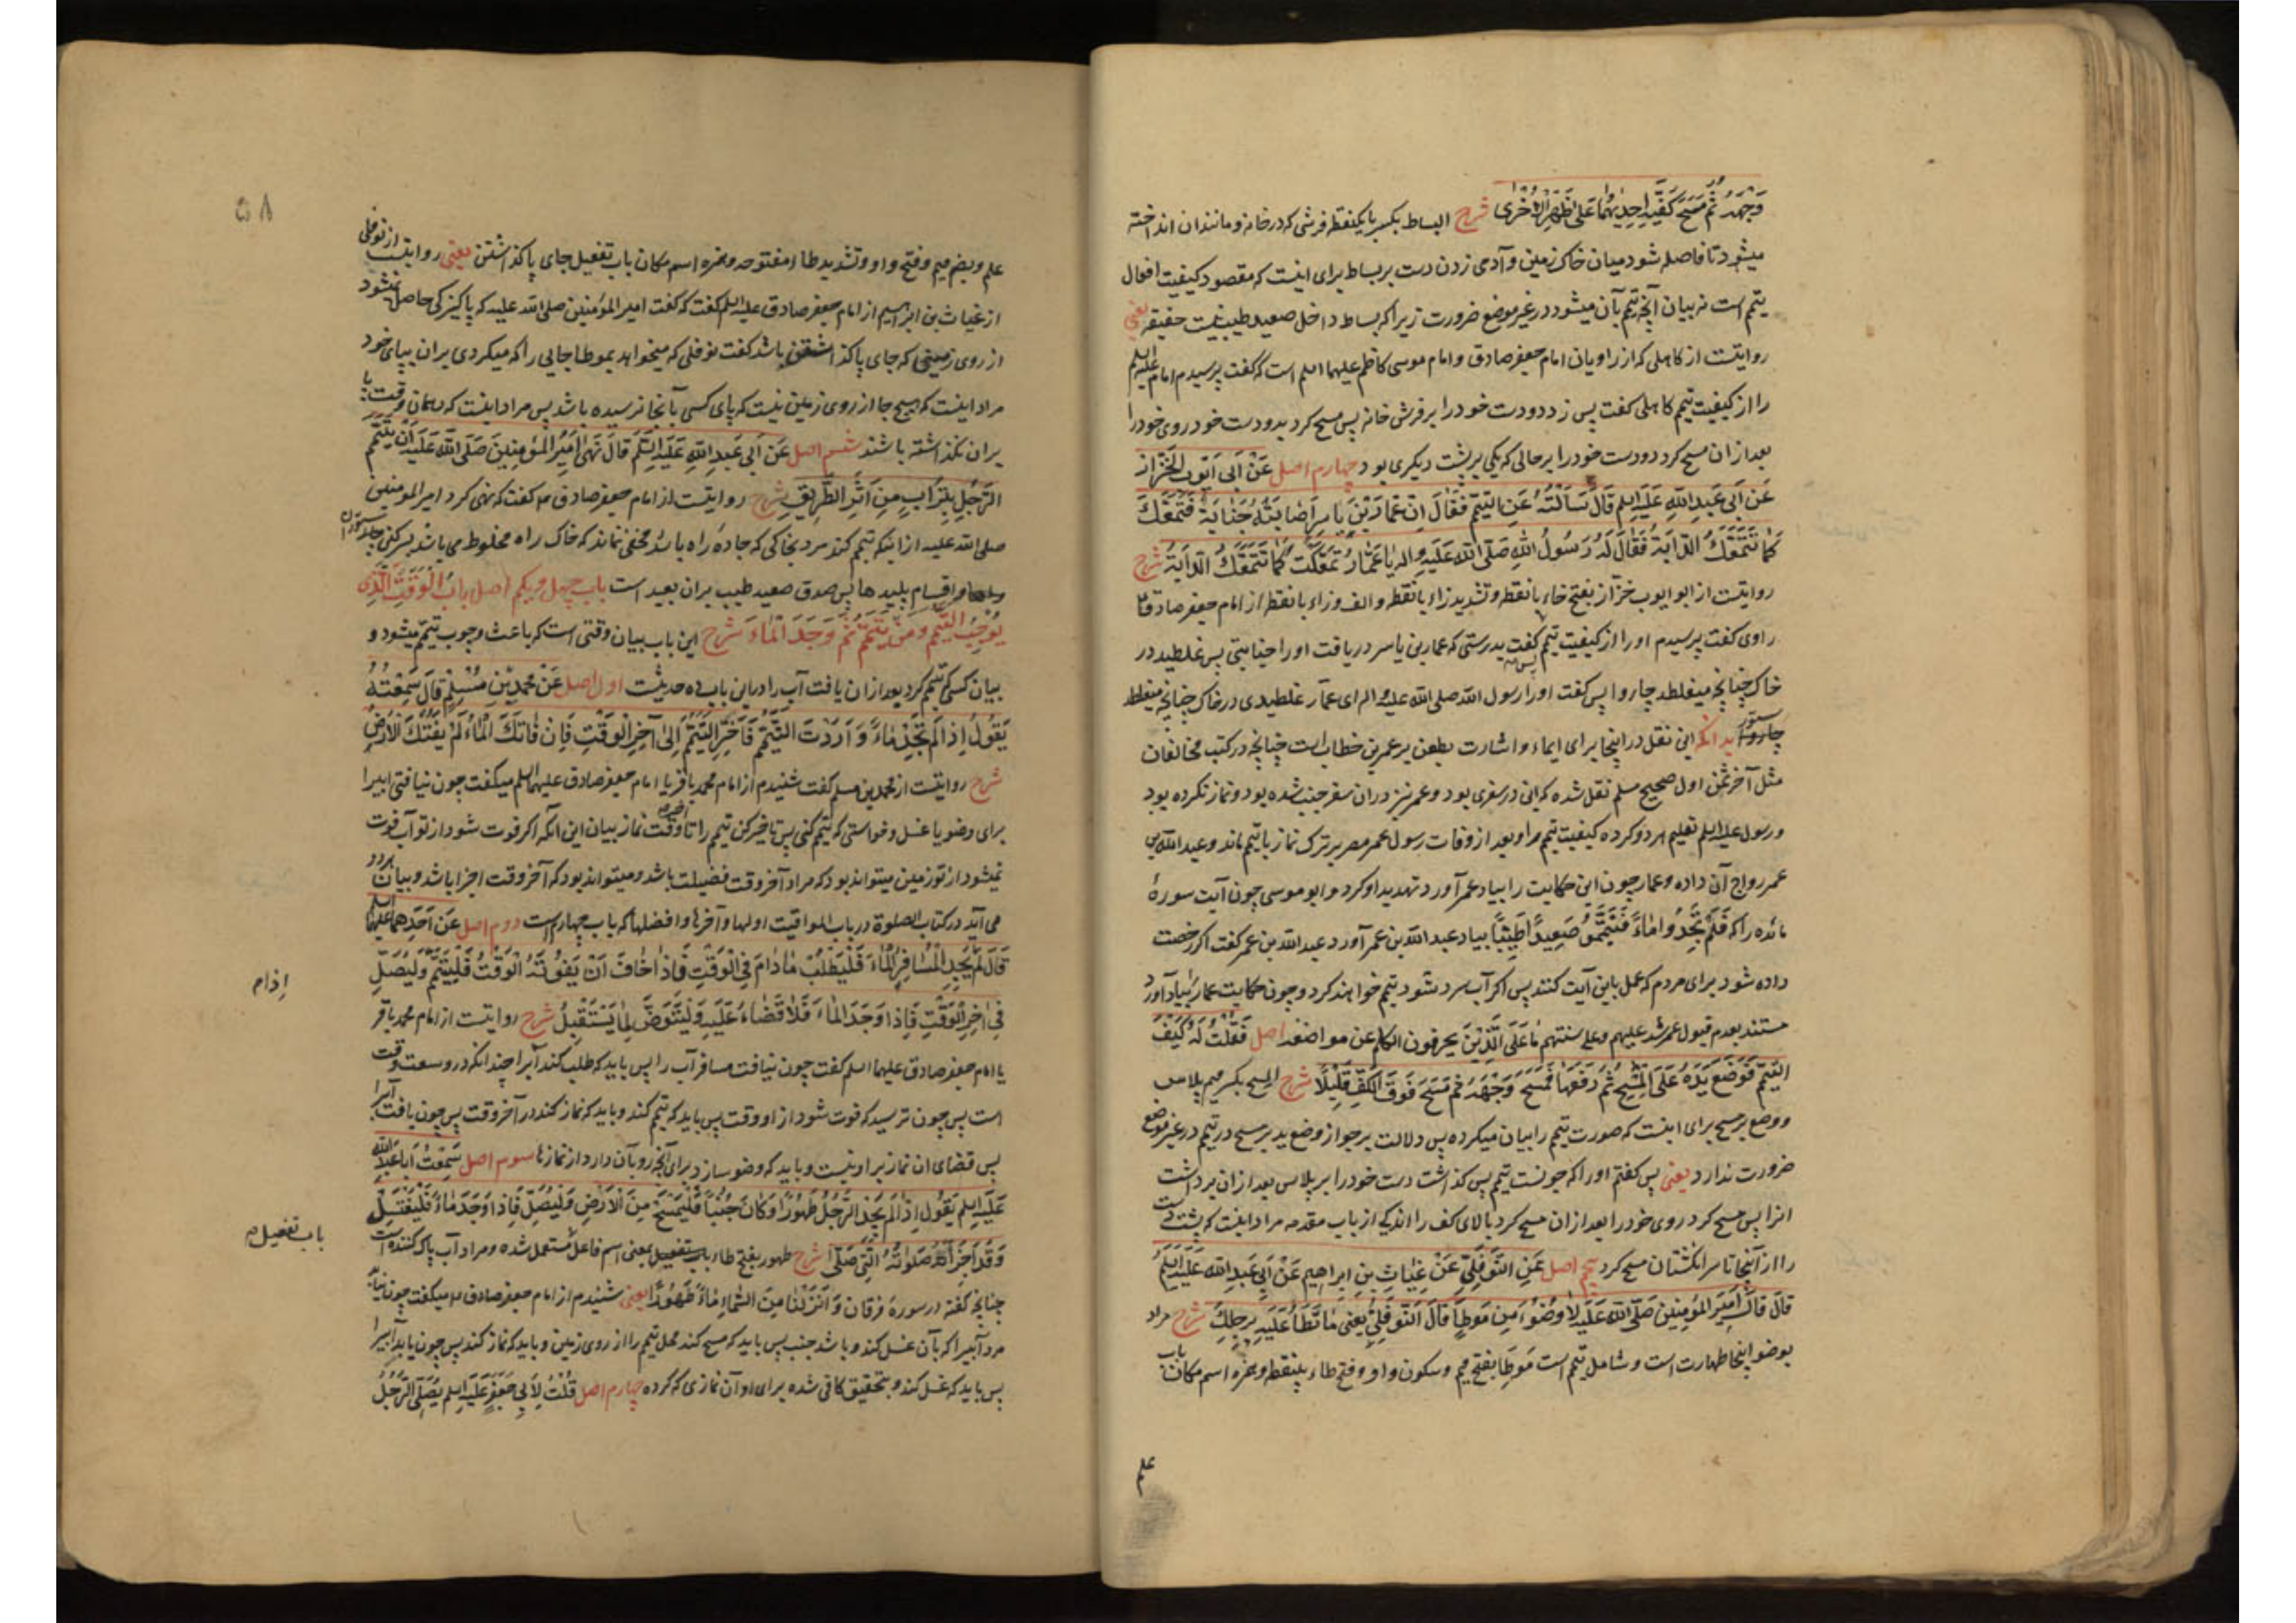 وَجْهَهُ ثُمَّ مَسَحَ كَفَّيْهِ اِحْدٰيهُمَا عَلٰى ظَهْرِ الْاُخْرٰى شرح البساط بکسر با یکنقطه فرشی که در خانه و مانند آن انداخته
میشود تا فاصله شود میان خاک زمین و آدمی زدن دست بر بساط برای اینست که مقصود کیفیت افعال
تیمم است نه بیان آنچه تیمم بآن میشود در غیر موضع ضرورت زیرا که بساط داخل صعید طیب نیست حقیقة یعنی
روایتست از کاهلی که از راویان امام جعفر صادق و امام موسی کاظم علیهما السلم است که گفت پرسیدم امام علیه السلم
را از کیفیت تیمم کاهلی گفت پس زد دو دست خود را بر فرش خانه پس مسح کرد بدو دست خود روی خود را
بعد از ان مسح کرد دو دست خود را بر حالی که یکی بر پشت دیگری بود چهارم اصل عَنْ اَبِى اَيُّوبَ الْخَزَّازِ
عَنْ اَبِى عَبْدِ اللّٰهِ عَلَيْهِ السلم قَالَ سَاَلْتُهُ عَنِ التَّيَمُّمِ فَقَالَ اِنَّ عَمَّارَ بْنَ يَاسِرٍ اَصَابَتْهُ جَنَابَةٌ فَتَمَعَّكَ
كَمَا تَتَمَعَّكُ الدَّابَّةُ فَقَالَ لَهُ رَسُولُ اللّٰهِ صَلَّى اللّٰهُ عَلَيْهِ وَاٰلِهِ يَا عَمَّارُ تَمَعَّكْتَ كَمَا تَتَمَعَّكُ الدَّابَّةُ شرح
روایتست از ابو ایوب خزّاز بفتح خاء بانقطه و تشدید زاء بانقطه و الف و زاء بانقطه از امام جعفر صادق
راوی گفت پرسیدم او را از کیفیت تیمم پس گفت بدرستی که عمار بن یاسر دریافت او را جنابتی پس غلطید در
خاک چنانچه میغلطد چاروا پس گفت او را رسول الله صلی الله علیه و اله ای عمّار غلطیدی در خاک چنانچه میغلطد
ستور بدانکه این نقل در اینجا برای ایماء و اشارت بطعن بر عمر بن خطاب است چنانچه در کتب مخالفان
مثل آخر ثمن اول صحیح مسلم نقل شده که این در سفری بود و عمر نیز در ان سفر جنب شده بود و نماز نکرده بود
و رسول علیه السلم تعلیم هر دو کرده کیفیت تیمم را و بعد از وفات رسول عمر مصر بر ترک نماز با تیمم ماند و عبد الله بن
عمر رواج آن داده و عمار چون این حکایت را بیاد عمر آورد تهدید او کرد و ابو موسی چون آیت سورهٔ
مائده را که فَلَمْ تَجِدُوا مَاءً فَتَيَمَّمُوا صَعِيدًا طَيِّبًا بیاد عبد الله بن عمر آورد عبد الله بن عمر گفت اگر رخصت
داده شود برای مردم که عمل باین آیت کنند پس اگر آب سرد شود تیمم خواهند کرد و چون حکایت عمار بیاد آورد
مستند بعدم قبول عمر شد علیهم و علی سنتهم مَا عَلَى الَّذِينَ یحرفون الکلم عن مواضعه اصل فَقُلْتُ لَهُ كَيْفَ
التَّيَمُّمُ فَوَضَعَ يَدَهُ عَلَى الْمِسْحِ ثُمَّ رَفَعَهَا فَمَسَحَ وَجْهَهُ ثُمَّ مَسَحَ فَوْقَ الْكَفِّ قَلِيلًا شرح المسح بکسر میم پلاس
و وضع بر مسح برای اینست که صورت تیمم را بیان میکرده پس دلالت بر جواز وضع ید بر مسح در تیمم در غیر موضع
ضرورت ندارد یعنی پس گفتم او را که چونست تیمم پس گذاشت دست خود را بر پلاس بعد از ان برداشت
انرا پس مسح کرد روی خود را بعد از ان مسح کرد بالای کف را اندکی از باب مقدمه مراد اینست که پشت دست
را از آنجا تا سر انگشتان مسح کرد پنجم اصل عَنِ النَّوْفَلِيِّ عَنْ غِيَاثِ بْنِ اِبْرَاهِيمَ عَنْ اَبِى عَبْدِ اللّٰهِ عَلَيْهِ السلم
قَالَ قَالَ اَمِيرُ الْمُؤْمِنِينَ صَلَّى اللّٰهُ عَلَيْهِ لَا وُضُوءَ مِنْ مَوْطَاٍ قَالَ النَّوْفَلِيُّ يَعْنِى مَا تَطَاُ عَلَيْهِ بِرِجْلِكَ شرح مراد
بوضو اینجا طهارت است و شامل تیمم است مَوطَأ بفتح میم و سکون واو و فتح طاء بینقطه و همزه اسم مکان باب
علم
۵۸
علم و بضم میم و فتح واو و تشدید طاء مفتوحه و همزه اسم مکان باب تفعیل جای پا گذاشتن یعنی روایتست از نوفلی
از غیاث بن ابراهیم از امام جعفر صادق علیه السلم گفت که گفت امیر المؤمنین صلی الله علیه که پاکیزگی حاصل نمیشود
از روی زمینی که جای پا گذاشتن باشد گفت نوفلی که میخواهد بموطا جایی را که میگردی بران بپای خود
مراد اینست که هیچ جا از روی زمین نیست که پای کسی بآنجا نرسیده باشد پس مراد اینست که دران وقت پا
بران نگذاشته باشند ششم اصل عَنْ اَبِى عَبْدِ اللّٰهِ عَلَيْهِ السَّلَم قَالَ نَهٰى اَمِيرُ الْمُؤْمِنِينَ صَلَّى اللّٰهُ عَلَيْهِ اَنْ يَتَيَمَّمَ
الرَّجُلُ بِتُرَابٍ مِنْ اَثَرِ الطَّرِيقِ شرح روایتست از امام جعفر صادق ع گفت که نهی کرد امیر المومنین
صلی الله علیه از اینکه تیمم کند مرد بخاکی که جادهٔ راه باشد مخفی نماند که خاک راه مخلوط می باشد بسرگین ستوران
و اقسام پلیدها پس صدق صعید طیب بران بعید است باب چهل و یکم اصل بَابُ الْوَقْتِ الَّذِى
يُوجِبُ التَّيَمُّمَ وَمَنْ تَيَمَّمَ ثُمَّ وَجَدَ الْمَاءَ شرح این باب بیان وقتی است که باعث وجوب تیمم میشود و
بیان کسی که تیمم کرد بعد از ان یافت آب را درین باب ده حدیثست اول اصل عَنْ مُحَمَّدِ بْنِ مُسْلِمٍ قَالَ سَمِعْتُهُ
يَقُولُ اِذَا لَمْ تَجِدْ مَاءً وَاَرَدْتَ التَّيَمُّمَ فَاَخِّرِ التَّيَمُّمَ اِلٰى آخِرِ الْوَقْتِ فَاِنْ فَاتَكَ الْمَاءُ لَمْ يَفُتْكَ الْاَرْضُ
شرح روایتست از محمد بن مسلم گفت شنیدم از امام محمد باقر یا امام جعفر صادق علیهما السلم میگفت چون نیافتی آبیرا
برای وضو یا غسل و خواستی که تیمم کنی پس تاخیر کن تیمم را تا آخر وقت نماز بیان این آنکه اگر فوت شود از تو آب فوت
نمیشود از تو زمین میتواند بود که مراد آخر وقت فضیلت باشد و میتواند بود که آخر وقت اجزا باشد و بیان هر دو
می آید در کتاب الصلوة در باب المواقیت اولها و آخرها و افضلها که باب چهارم است دوم اصل عَنْ اَحَدِهِمَا عَلَيْهِمَا السلم
قَالَ لَمْ يَجِدِ الْمُسَافِرُ الْمَاءَ فَلْيَطْلُبْ مَا دَامَ فِى الْوَقْتِ فَاِذَا خَافَ اَنْ يَفُوتَهُ الْوَقْتُ فَلْيَتَيَمَّمْ وَلْيُصَلِّ
اذا م
فِى اٰخِرِ الْوَقْتِ فَاِذَا وَجَدَ الْمَاءَ فَلَا قَضَاءَ عَلَيْهِ وَلْيَتَوَضَّ لِمَا يَسْتَقْبِلُ شرح روایتست از امام محمد باقر
یا امام جعفر صادق علیهما السلم گفت چون نیافت مسافر آب را پس باید که طلب کند آبرا چندانکه در وسعت وقت
است پس چون ترسید که فوت شود از او وقت پس باید که تیمم کند و باید که نماز کند در آخر وقت پس چون یافت آبرا
پس قضای ان نماز بر او نیست و باید که وضو سازد برای آنچه رو بآن دارد از نمازها سوم اصل سَمِعْتُ اَبَا عَبْدِ اللّٰهِ
عَلَيْهِ السلم يَقُولُ اِذَا لَمْ يَجِدِ الرَّجُلُ طَهُورًا وَكَانَ جُنُبًا فَلْيَمْسَحْ مِنَ الْاَرْضِ وَلْيُصَلِّ فَاِذَا وَجَدَ مَاءً فَلْيَغْتَسِلْ
باب تفعیل م
وَقَدْ اَجْزَاَتْهُ صَلٰوتُهُ الَّتِى صَلّٰى شرح طهور بفتح طاء بمعنی اسم فاعل مستعمل شده و مراد آب پاک کننده است
چنانچه گفته در سورهٔ فرقان وَاَنْزَلْنَا مِنَ السَّمَاءِ مَاءً طَهُورًا یعنی شنیدم از امام جعفر صادق ع میگفت چون نیابد
مرد آبیرا که بآن غسل کند و باشد جنب پس باید که مسح کند محل تیمم را از روی زمین و باید که نماز کند پس چون یابد آبیرا
پس باید که غسل کند و بتحقیق کافی شده برای او آن نمازی که کرده چهارم اصل قُلْتُ لِاَبِى جَعْفَرٍ عَلَيْهِ السلم يُصَلِّى الرَّجُلُ